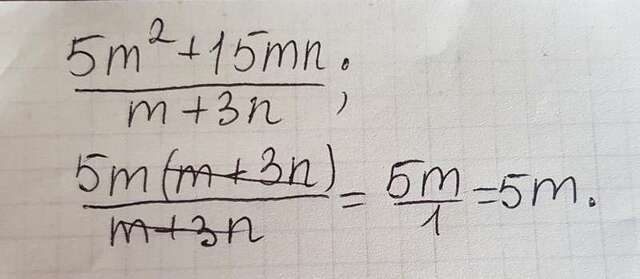 (5m²+15mn)/(m+3n);
(5m(m+3n))/(m+3n) = 5m/1 = 5m.